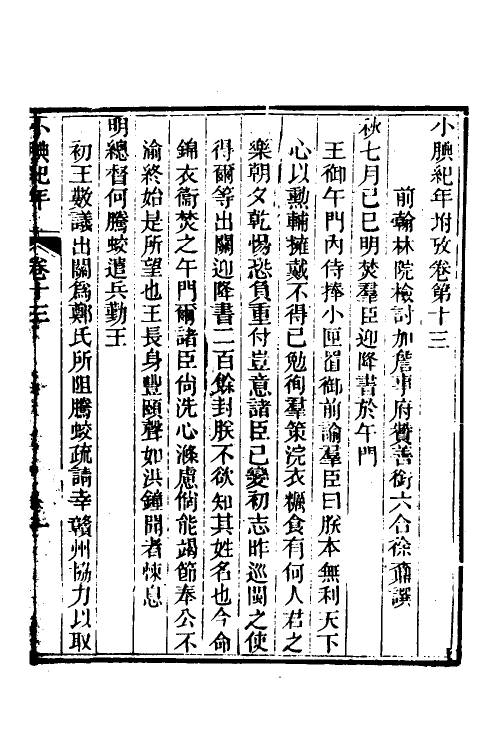 小腆紀年坿攷卷第十三
前翰林院檢討加詹事府贊善銜六合徐鼒譔
秋七月己巳明焚羣臣迎降書於午門
王御午門內侍捧小匣置御前諭羣臣曰朕本無利天下
心以勲輔擁戴不得已勉徇羣策浣衣糲食有何人君之
樂朝夕乾惕恐負重付豈意諸臣已變初志昨巡閩之使
得爾等出關迎降書二百餘封朕不欲知其姓名也今命
錦衣衞焚之午門爾諸臣尙洗心滌慮倘能竭節奉公不
渝終始是所望也王長身豐頤聲如洪鐘聞者悚息
明總督何騰蛟遣兵勤王
初王數議出關爲鄭氏所阻騰蛟疏請幸贛州協力以取
小腆紀年
卷十三